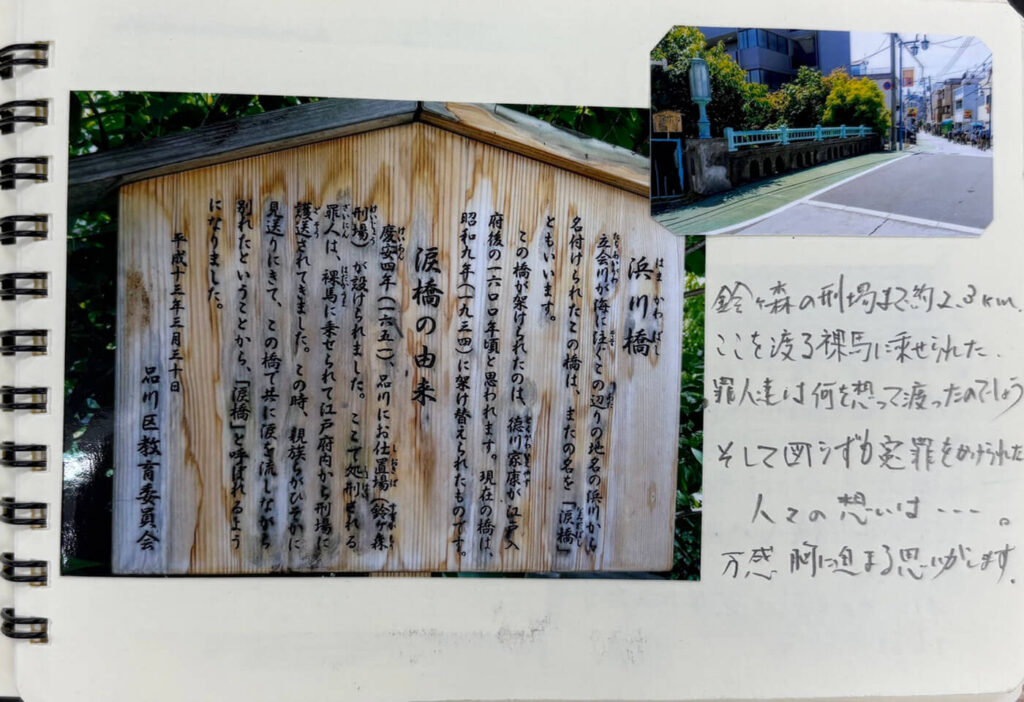 浜川橋
立会川が海に注ぐこの辺りの地名の浜川から
名付けられたこの橋は、またの名を「涙橋」
ともいいます。
この橋が架けられたのは、徳川家康が江戸入
府後の一六〇〇年頃と思われます。現在の橋は、
昭和九年(一九三四)に架け替えられたものです。
涙橋の由来
慶安四年(一六五一)、品川にお仕置場(鈴ヶ森
刑場)が設けられました。ここで処刑される
罪人は、裸馬に乗せられて江戸府内から刑場に
護送されてきました。この時、親族らがひそかに
見送りにきて、この橋で共に涙を流しながら
別れたということから、「涙橋」と呼ばれるよう
になりました。
平成十三年三月三十日
品川区教育委員会
鈴ヶ森の刑場まで約2.3km.
ここを渡る裸馬に乗せられた、
罪人達は何を想って渡ったのでしょう
そして図らずか冤罪をかけられた
人々の想いは---。
万感胸に迫まる思いがします.